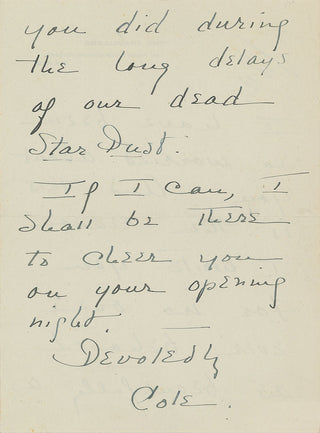 you did during
the long delays
of our dead
Star Dust.
If I can, I
shall be there
to cheer you
on your opening
night. —
Devotedly
Cole.